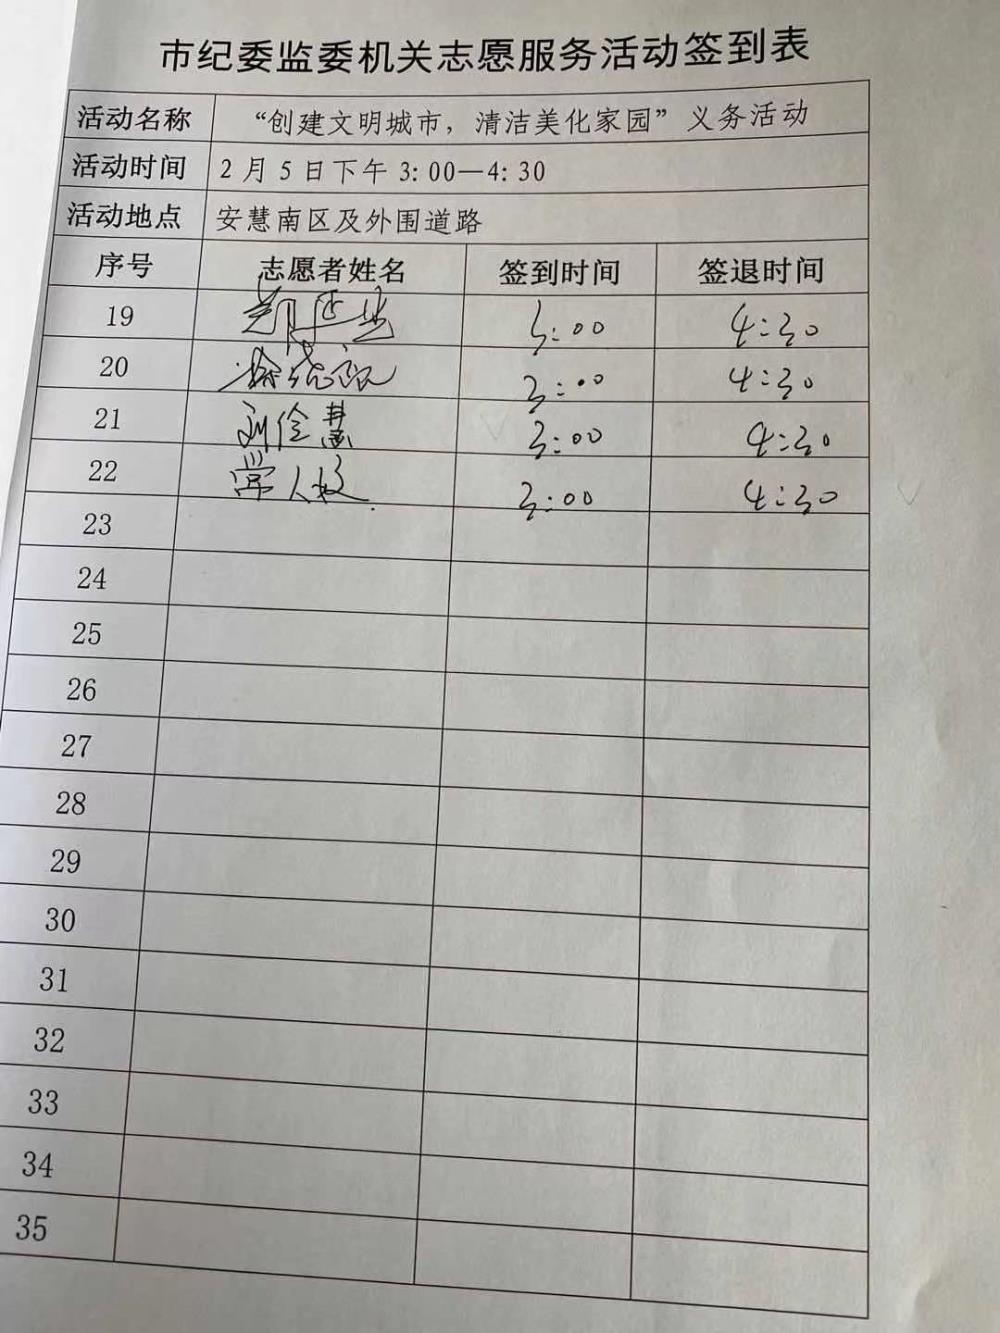 市纪委监委机关志愿服务活动签到表
活动名称 “创建文明城市，清洁美化家园”义务活动
活动时间 2月5日下午3:00—4:30
活动地点 安慧南区及外围道路
序号 志愿者姓名 签到时间 签退时间
19 3:00 4:30
20 3:00 4:30
21 3:00 4:30
22 3:00 4:30
23
24
25
26
27
28
29
30
31
32
33
34
35